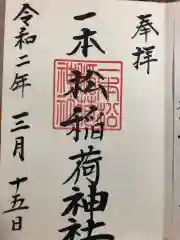 奉拝
一本松稲荷神社
令和二年三月十五日